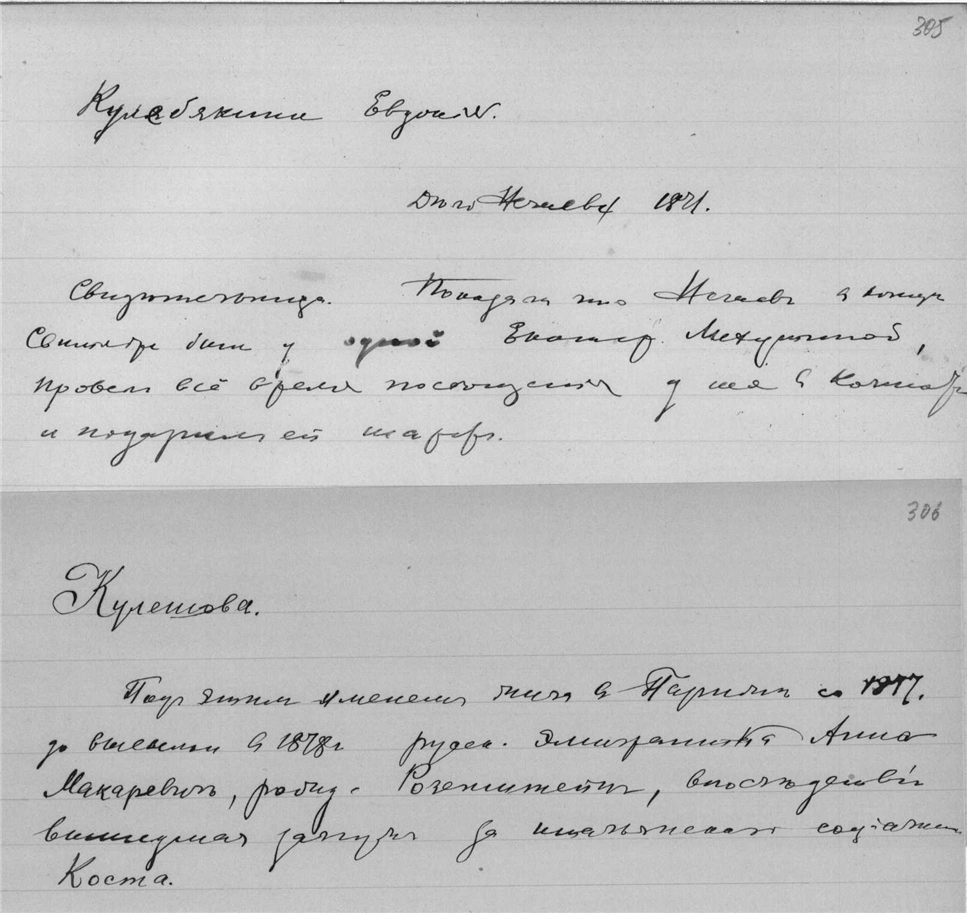 305
Кулебякина Евдок.
Дело Нечаева 1871.
Свидетельница. Показала что Нечаевъ в конце
Сентября был у одной Екатер.
провел всё время посещения у нея в
и подарил ей шарфъ.
306
Кулешова.
Подъ этим именемъ жила в Париже со 1877.
до высылки в 1878г русск. эмигрантка Анна
Макаревичъ, рожд. Розенштейнъ, впоследствіи
вышедшая замужъ за итальянскаго
Коста.